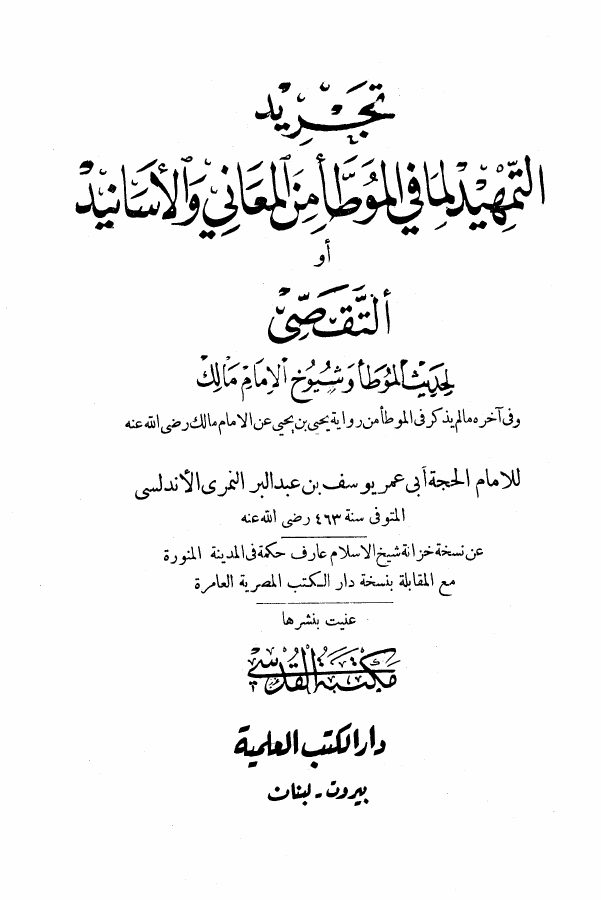 تجريد
التمهيد لما في الموطأ من المعاني والأسانيد
أو
ألتقصي
لحديث الموطأ وشيوخ الإمام مالك
وفى آخره مالم يذكر فى الموطأ من رواية يحيى بن يحيى عن الامام مالك رضى الله عنه
للامام الحجة أبى عمر يوسف بن عبد البر النمرى الأندلسى
المتوفى سنة ٤٦٣ رضى الله عنه
عن نسخة خزانة شيخ الاسلام عارف حكمة فى المدينة المنورة
مع المقابلة بنسخة دار الكتب المصرية العامرة
عنيت بنشرها
مكتبة القدسي
دار الكتب العلمية
بيروت - لبنان